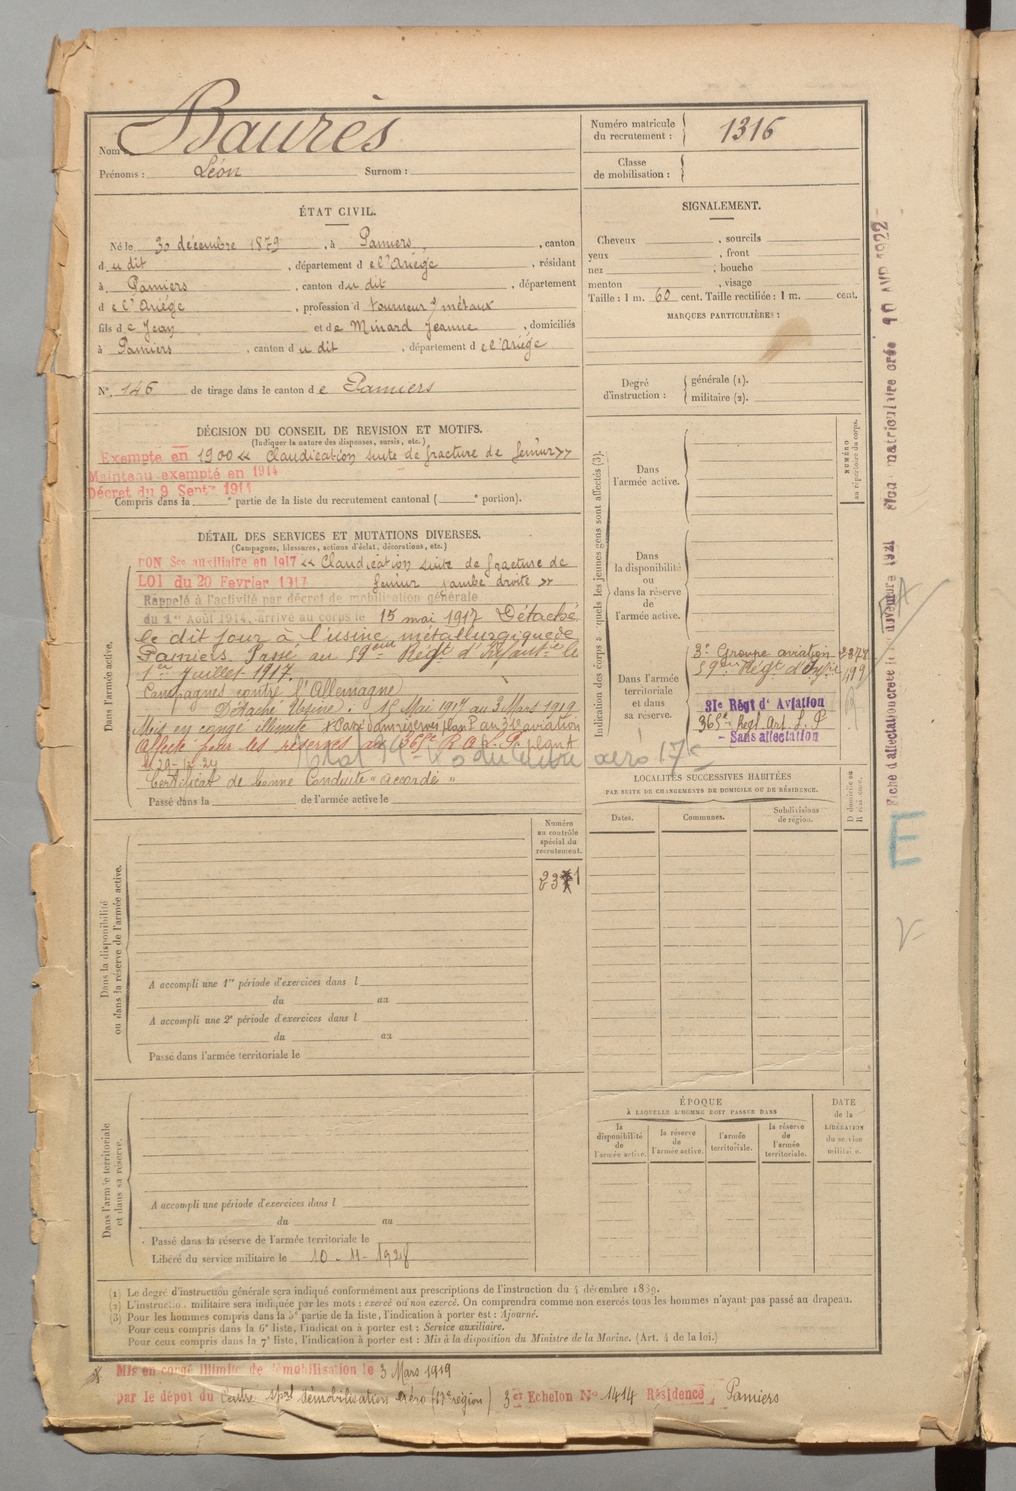 Nom : Baurès
Prénoms : Léon Surnom :
Numéro matricule du recrutement : 1316
Classe de mobilisation :
ÉTAT CIVIL.
Né le 30 décembre 1879, à Pamiers, canton
du dit, département de l'Ariège, résidant
à Pamiers, canton du dit, département
de l'Ariège, profession de tourneur s/ métaux
fils de Jean et de Minard Jeanne, domiciliés
à Pamiers, canton du dit, département de l'Ariège
N° 146 de tirage dans le canton de Pamiers
SIGNALEMENT.
Cheveux , sourcils
yeux , front
nez , bouche
menton , visage
Taille : 1 m. 60 cent. Taille rectifiée : 1 m. cent.
MARQUES PARTICULIÈRES :
Degré d'instruction : générale (1). militaire (2).
DÉCISION DU CONSEIL DE REVISION ET MOTIFS.
(Indiquer la nature des dispenses, sursis, etc.)
Exempté en 1900 « Claudication suite de fracture de fémur »
Maintenu exempté en 1914
Décret du 9 Septre 1914
Compris dans la e partie de la liste du recrutement cantonal ( e portion).
DÉTAIL DES SERVICES ET MUTATIONS DIVERSES.
(Campagnes, blessures, actions d'éclat, décorations, etc.)
BON Sce auxiliaire en 1917 « Claudication suite de fracture de
LOI du 20 Février 1917 fémur jambe droite »
Rappelé à l'activité par décret de mobilisation générale
du 1er Août 1914, arrivé au corps le 15 mai 1917 Détaché
le dit jour à l'usine métallurgique de
Pamiers. Passé au 59eme Régt d'Infantie le
1er Juillet 1917.
Campagnes contre l'Allemagne
Détaché Usine : 15 Mai 1917 au 3 Mars 1919
Mis en congé illimité
Affecté pour les réserves au 365e R.A.L.P. plan A
Certificat de bonne Conduite "accordé"
Passé dans la de l'armée active le
Dans l'armée active.
Numéro au contrôle spécial du recrutement.
Dans la disponibilité ou dans la réserve de l'armée active.
A accompli une 1re période d'exercices dans l
du au
A accompli une 2e période d'exercices dans l
du au
Passé dans l'armée territoriale le
Dans l'armée territoriale et dans sa réserve.
A accompli une période d'exercices dans l
du au
Passé dans la réserve de l'armée territoriale le
Libéré du service militaire le 10-11-1928
Indication des corps auxquels les jeunes gens sont affectés (3).
NUMÉRO au répertoire du corps.
Dans l'armée active.
Dans la disponibilité ou dans la réserve de l'armée active.
Dans l'armée territoriale et dans sa réserve.
3e Groupe aviation
59eme Régt d'Infie
31e Régt d'Aviation
365e Regt Art. L. P
- Sans affectation
LOCALITÉS SUCCESSIVES HABITÉES
PAR SUITE DE CHANGEMENTS DE DOMICILE OU DE RÉSIDENCE.
Dates. Communes. Subdivisions de région. D domicile ou R résidence.
ÉPOQUE
À LAQUELLE L'HOMME DOIT PASSER DANS
la disponibilité de l'armée active. la réserve de l'armée active. l'armée territoriale. la réserve de l'armée territoriale.
DATE de la LIBÉRATION du service militaire.
(1) Le degré d'instruction générale sera indiqué conformément aux prescriptions de l'instruction du 4 décembre 1889.
(2) L'instruction militaire sera indiquée par les mots : exercé ou non exercé. On comprendra comme non exercés tous les hommes n'ayant pas passé au drapeau.
(3) Pour les hommes compris dans la 5e partie de la liste, l'indication à porter est : Ajourné.
Pour ceux compris dans la 6e liste, l'indication à porter est : Service auxiliaire.
Pour ceux compris dans la 7e liste, l'indication à porter est : Mis à la disposition du Ministre de la Marine. (Art. 4 de la loi.)
Mis en congé illimité de démobilisation le 3 Mars 1919
par le dépot du Centre spal démobilisation aéro (17e région) 3er Echelon No 1414 Résidence Pamiers
E